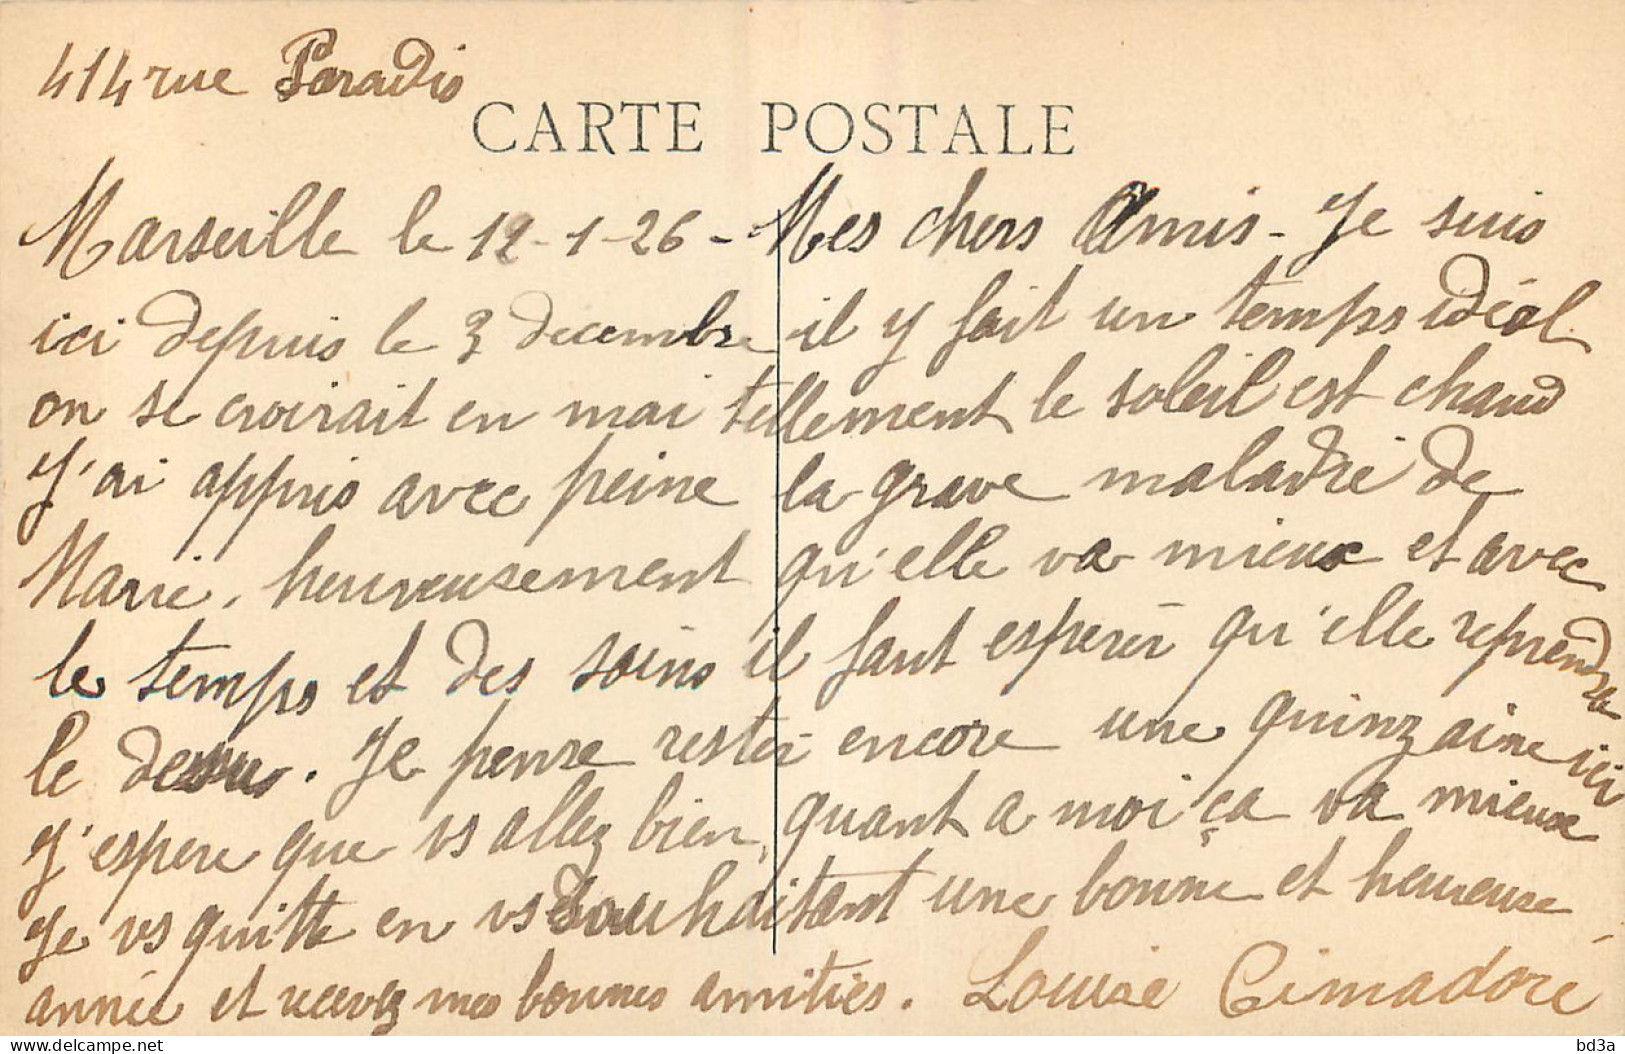 414 rue Paradis
CARTE POSTALE
Marseille le 12-1-26 - Mes chers Amis - Je suis
ici depuis le 3 decembre il y fait un temps idéal
on se croirait en mai tellement le soleil est chaud
J'ai appris avec peine la grave maladie de
Marie, heureusement qu'elle va mieux et avec
le temps et des soins il faut esperer qu'elle reprendra
le dessus. Je pense rester encore une quinzaine ici
J'espere que vs allez bien, quant a moi ça va mieux
Je vs quitte en vs souhaitant une bonne et heureuse
année et recevez mes bonnes amitiés. Louise Cimadoré
bd3a